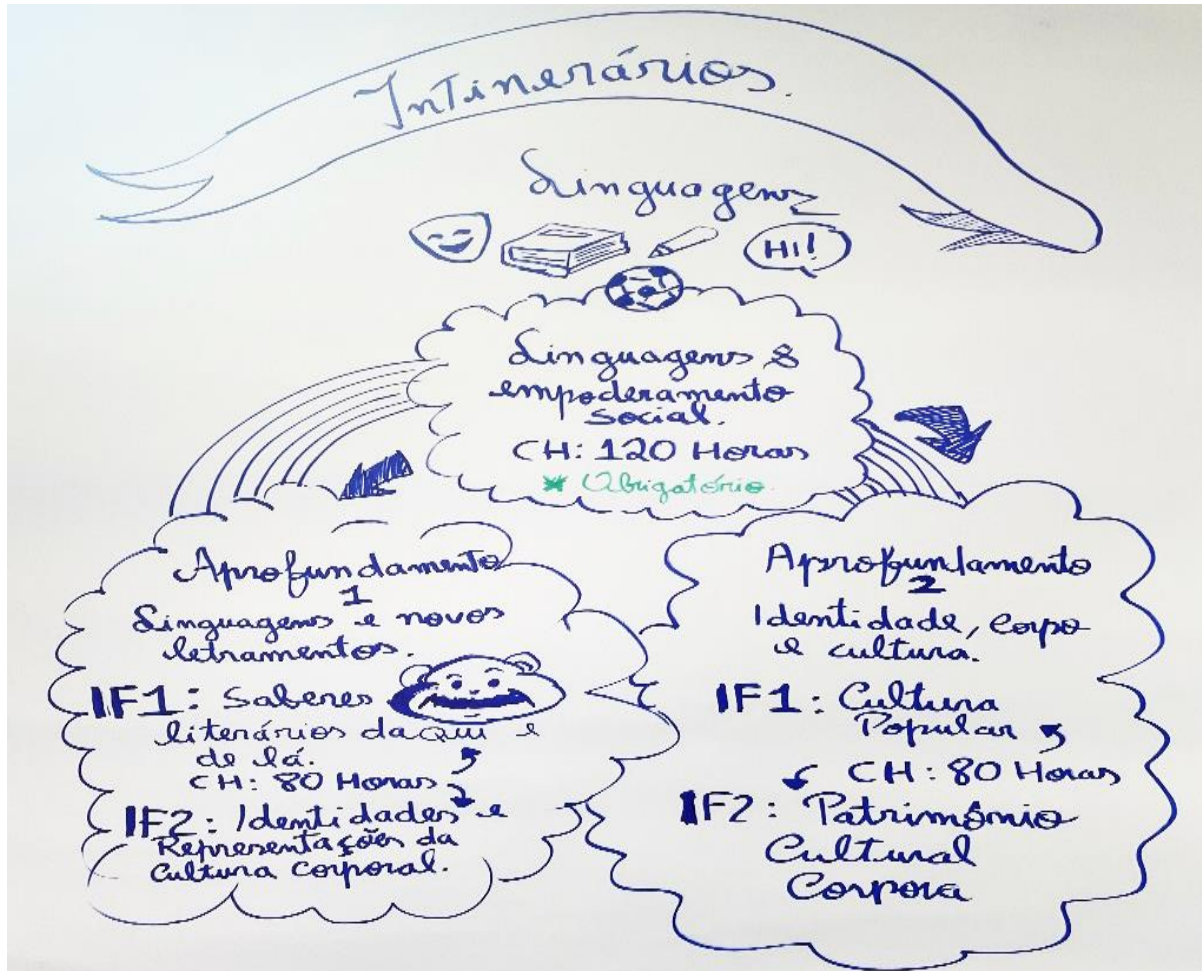 Intinerários.
Linguagens
HI!
Linguagens &
empoderamento
social.
CH: 120 Horas
* Obrigatório.
Aprofundamento
1
Linguagens e novos
letramentos.
IF1: Saberes
literários daqui e
de lá.
CH: 80 Horas
IF2: Identidades e
Representações da
Cultura Corporal.
Aprofundamento
2
Identidade, corpo
e cultura.
IF1: Cultura
Popular
CH: 80 Horas
IF2: Patrimônio
Cultural
Corpora